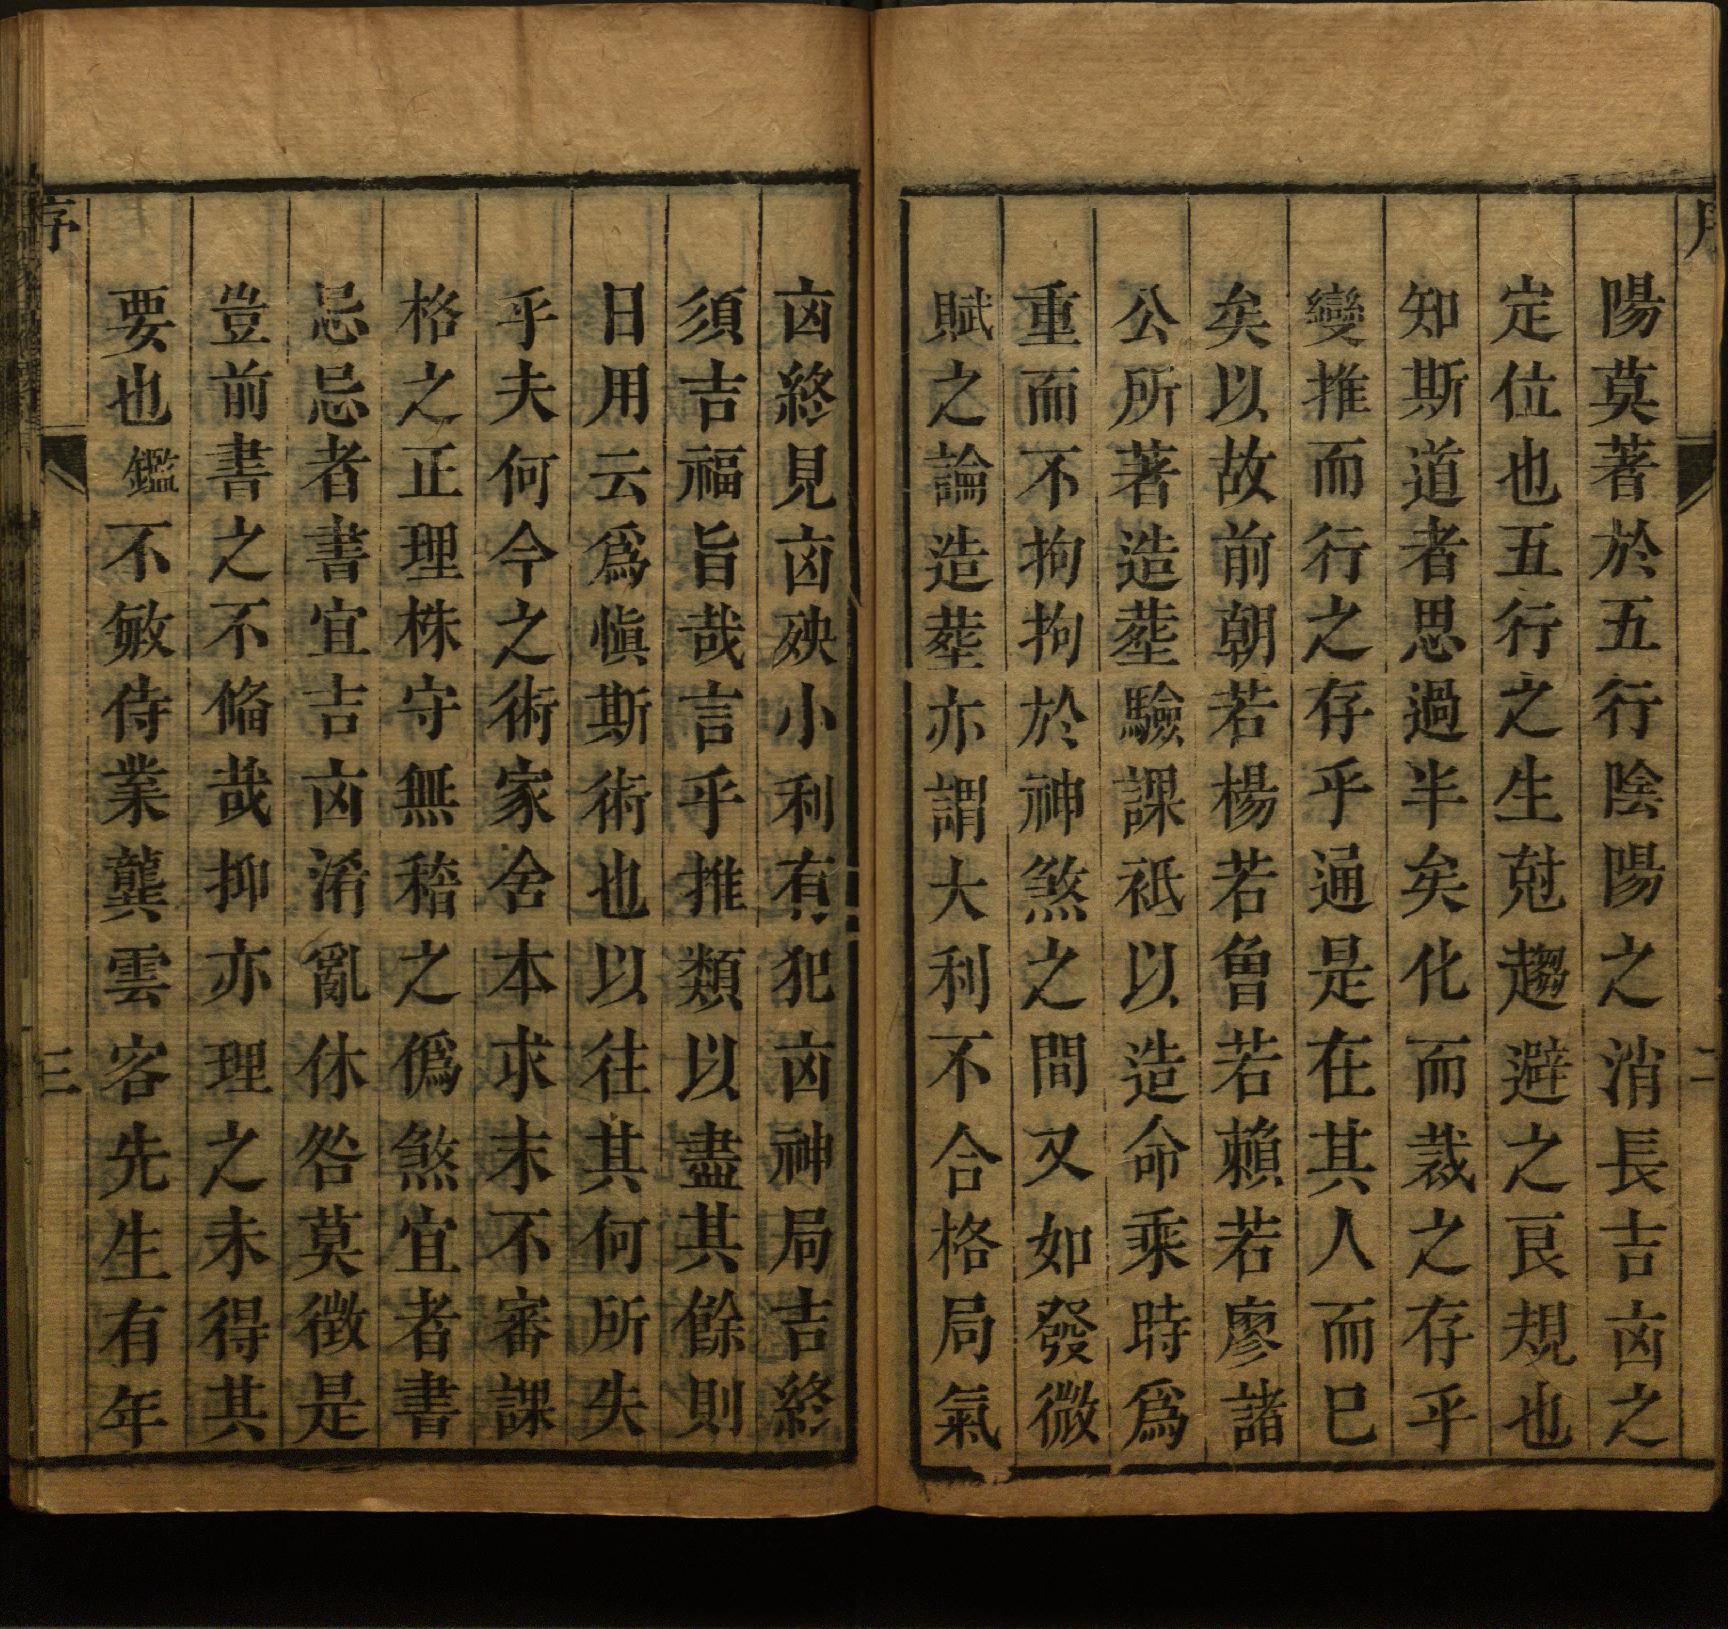 序
二
陽莫著於五行陰陽之消長吉凶之
定位也五行之生尅趨避之良規也
知斯道者思過半矣化而裁之存乎
變推而行之存乎通是在其人而巳
矣以故前朝若楊若曾若賴若廖諸
公所著造塟驗課祗以造命乘時爲
重而不拘拘於神煞之間又如發微
賦之論造塟亦謂大利不合格局氣
凶終見凶殃小利有犯凶神局吉終
須吉福旨哉言乎推類以盡其餘則
日用云爲愼斯術也以往其何所失
乎夫何今之術家舍本求末不審課
格之正理株守無稽之僞煞宜者書
忌忌者書宜吉凶淆亂休咎莫徴是
豈前書之不俻哉抑亦理之未得其
要也鑑不敏侍業龔雲客先生有年
序
三